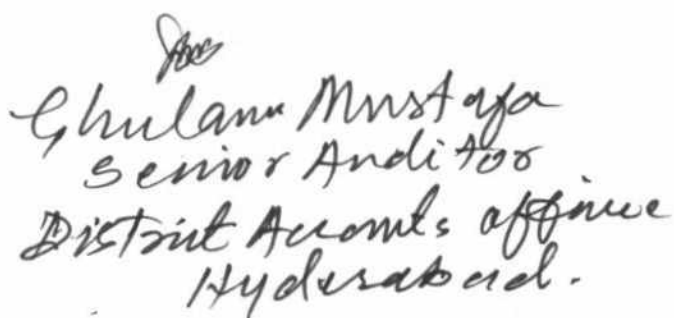 Ghulam Mustafa
Senior Auditor
District Accounts office
Hyderabad.